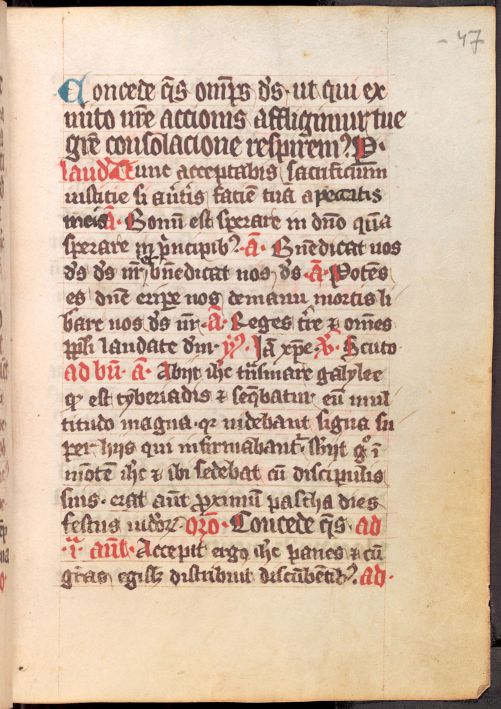 -47
Concede q̄s om̄ps ds̄. ut qui ex
mito nr̄e accionis affligimur tue
grē consolacione respirem⁹. P.
laud̄ Tunc acceptabis sacrificium
iusticie si aūtis faciē tuā a peccatis
meis A. Bonū est sperare in dn̄o quā
sperare in p̄ncipib⁹. A. Bn̄edicat nos
ds̄ ds̄ nr̄ bn̄edicat nos ds̄ A. Potēs
es dn̄e eripe nos de manu mortis li
bare nos ds̄ nr̄. A. Reges tr̄e ⁊ om̄es
pp̄li laudate dn̄m. ymps. Iā xp̄e. V. Scuto
ad bn̄. A. Abijt ih̄c tn̄smare galylee
qd̄ est tyberiadis ⁊ seq̄batur eū mul
titudo magna. qr̄ videbant signa su
per hijs qui infirmabant̄. Sbijt gͦ ī
mōtē ih̄c ⁊ ibi sedebat cū discipulis
suis. erat aūt p̄ximū pascha dies
festus iudeoꝝ. Oro. Concede q̄s. ad
.i. ant. Accepit ergo ih̄c panes ⁊ cū
grās egiss̄ distribuit discūbētib⁹. ad.